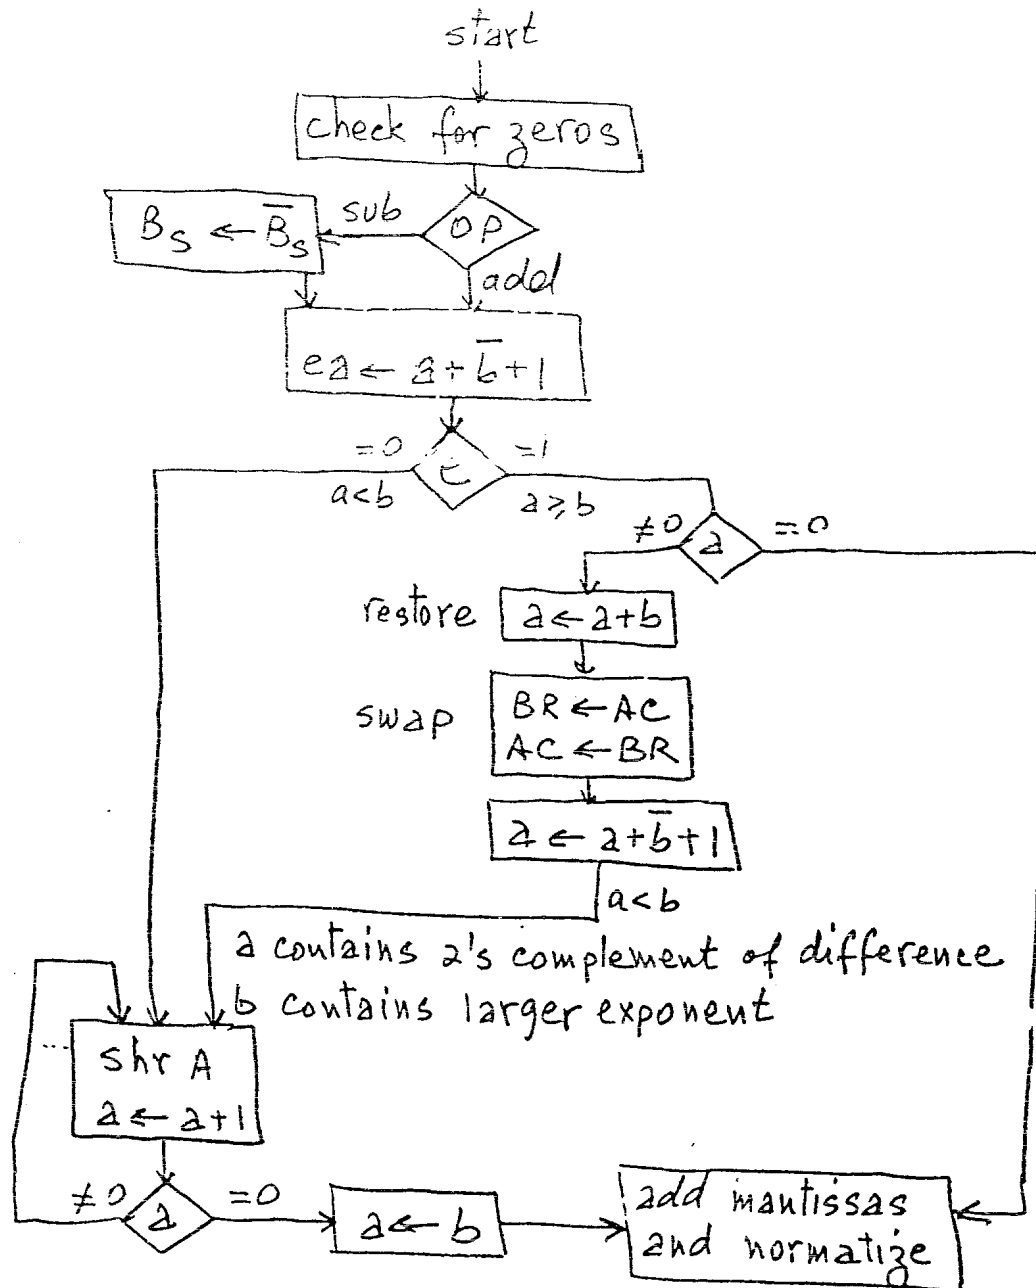 start
check for zeros
sub
OP
B_S ← B̅_S
add
ea ← a + b̅ + 1
=0
e
=1
a<b
a≥b
≠0
a
=0
restore
a ← a+b
swap
BR ← AC
AC ← BR
a ← a+b̅+1
a<b
a contains 2's complement of difference
b contains larger exponent
shr A
a ← a+1
≠0
a
=0
a ← b
add mantissas
and normatize